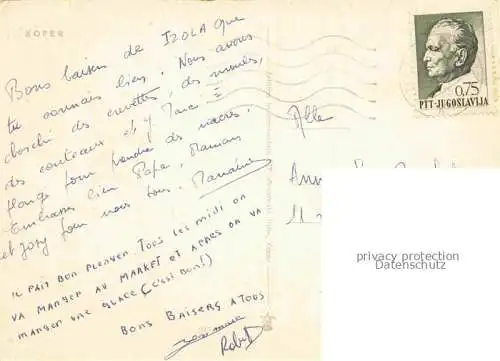 KOPER
Bons baisers de IZOLA que
tu connais bien. Nous avons
cherché des crevettes, des moules,
des couteaux et y
plonge pour prendre des nacres.
Embrasse bien Papa, Maman
et pour nous tous.
IL FAIT BON PLONGER. TOUS LES MIDI ON
VA MANGER AU MARKET ET APRES ON VA
MANGER UNE GLACE (C'EST BON!)
BONS BAISERS A TOUS
Robert
0,75
PTT-JUGOSLAVIJA
Mlle
privacy protection
Datenschutz